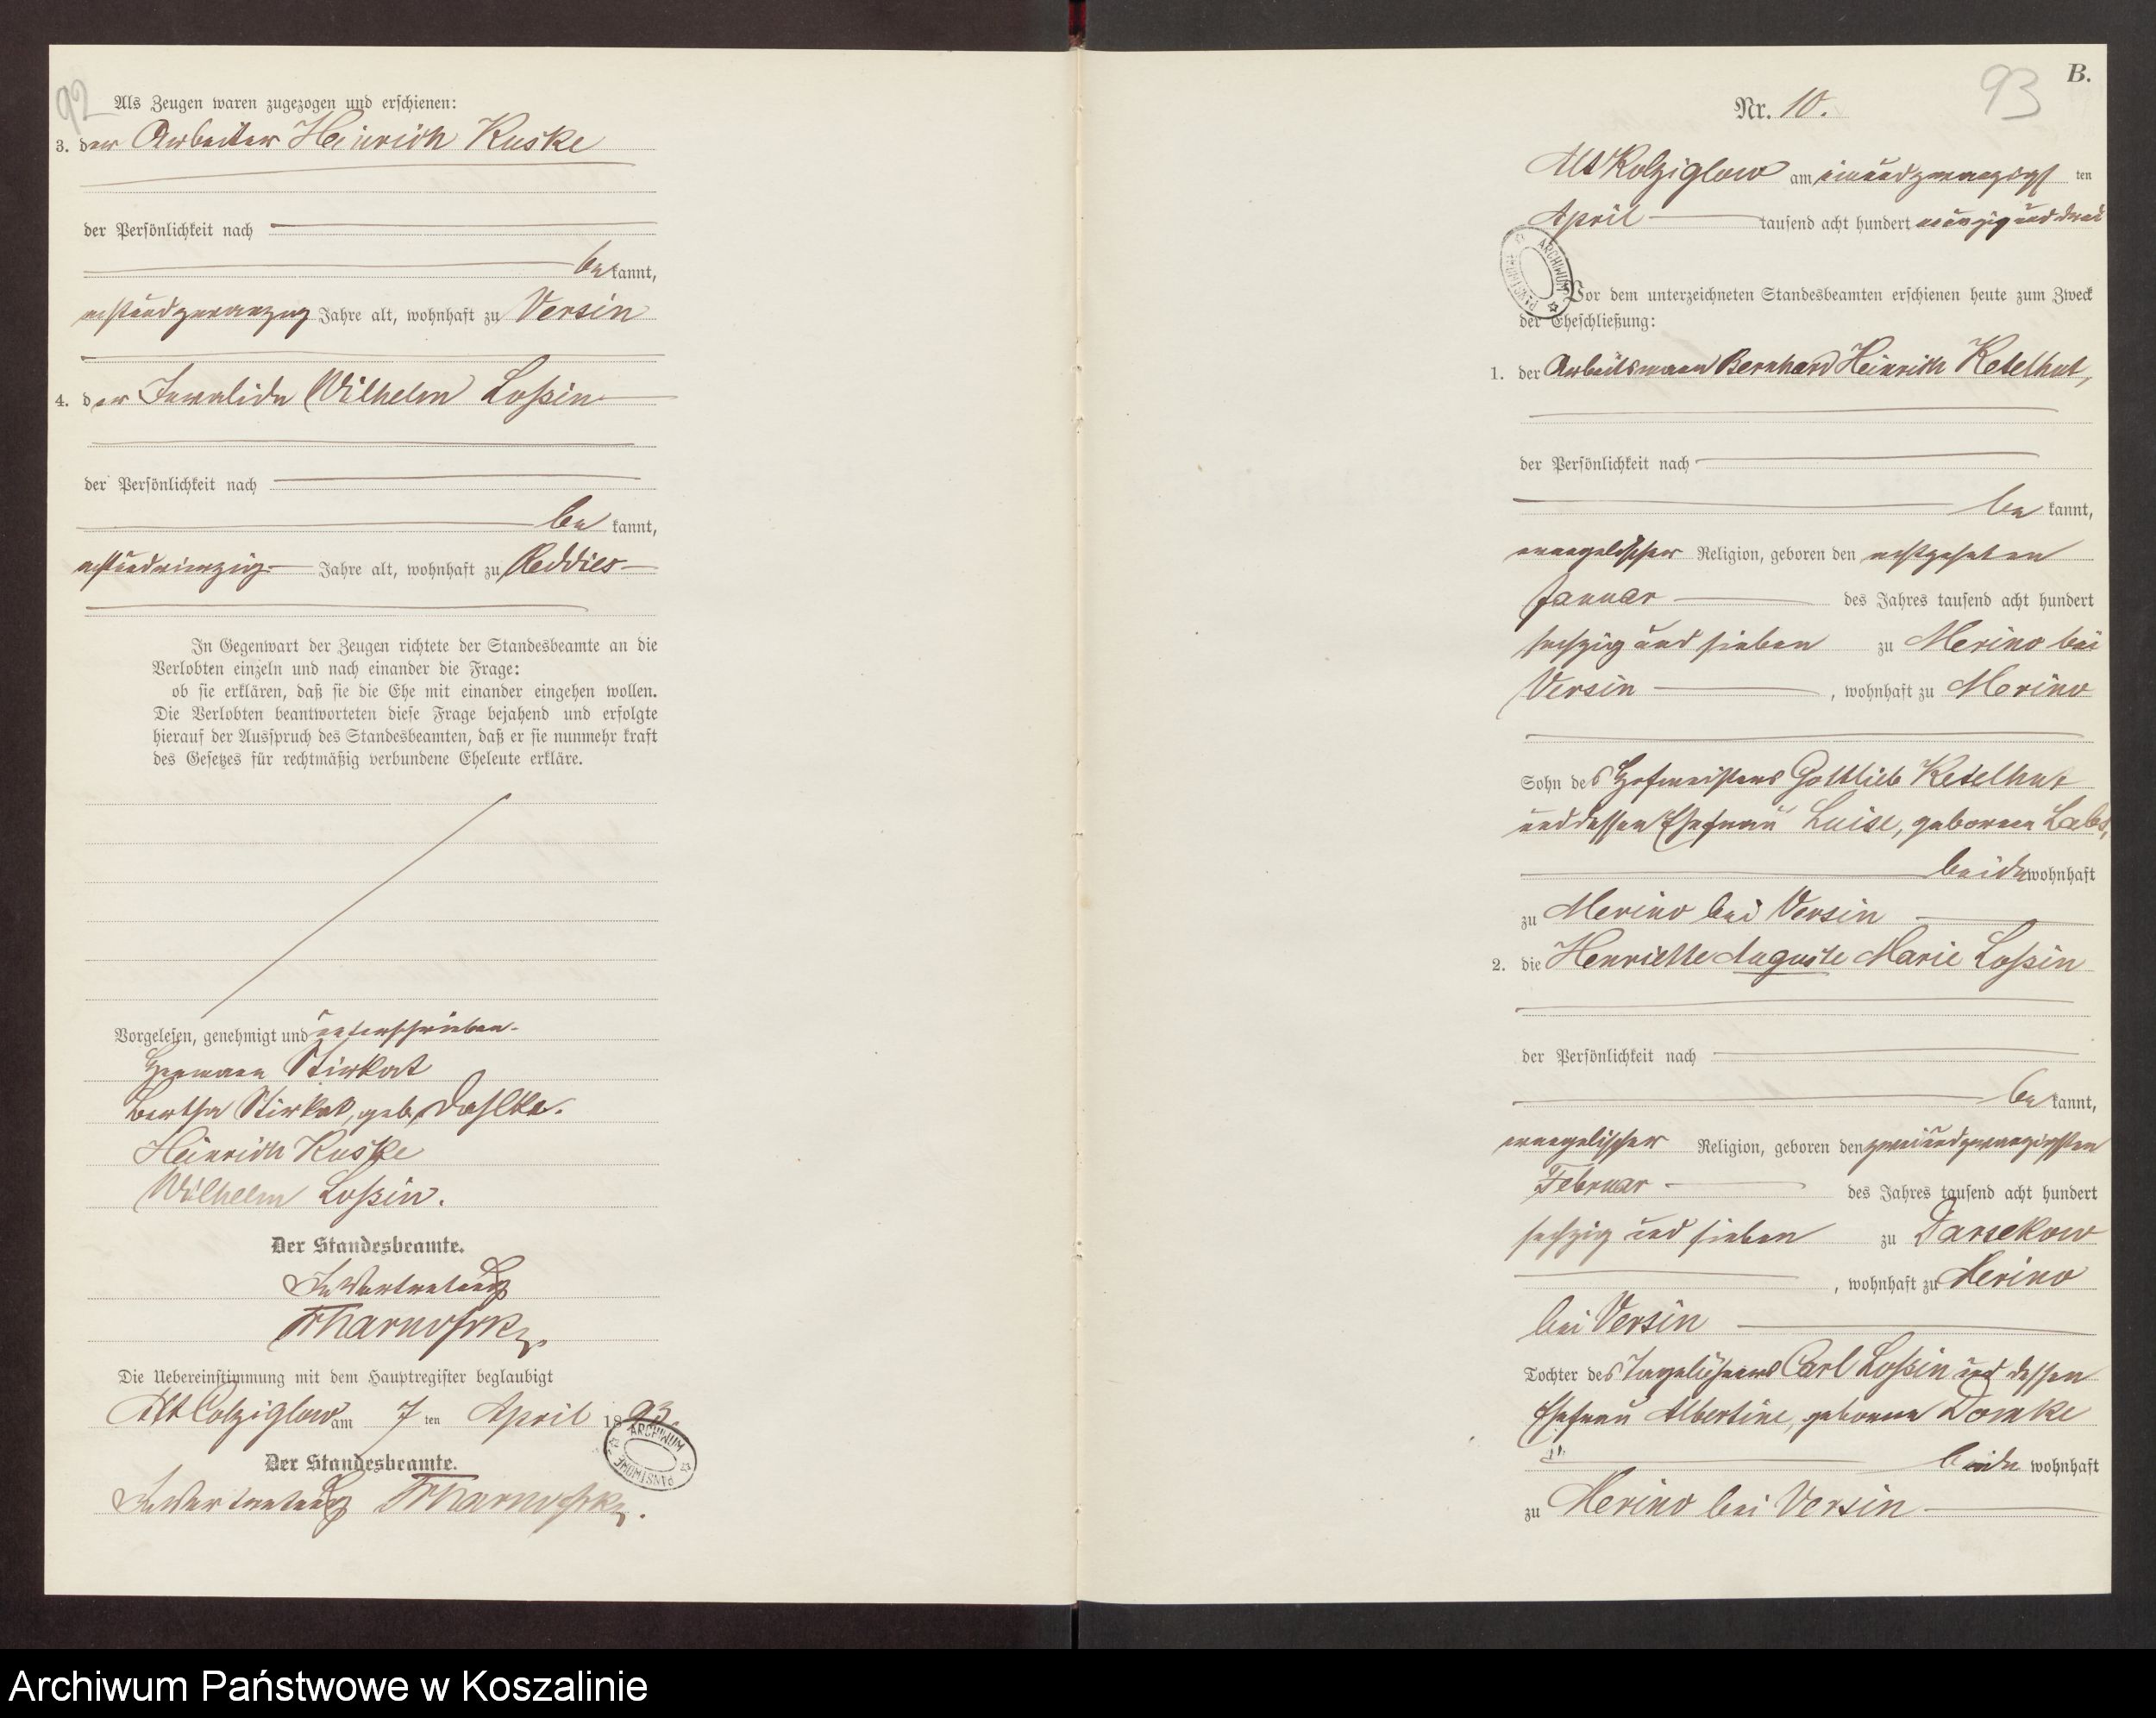 92
Als Zeugen waren zugezogen und erschienen:
3. der Arbeiter Heinrich Kuske
der Persönlichkeit nach
bekannt,
achtundzwanzig Jahre alt, wohnhaft zu Versin
4. der Invalide Wilhelm Loßin
der Persönlichkeit nach
be kannt,
Jahre alt, wohnhaft zu Reddies
In Gegenwart der Zeugen richtete der Standesbeamte an die
Verlobten einzeln und nach einander die Frage:
ob sie erklären, daß sie die Ehe mit einander eingehen wollen.
Die Verlobten beantworteten diese Frage bejahend und erfolgte
hierauf der Ausspruch des Standesbeamten, daß er sie nunmehr kraft
des Gesetzes für rechtmäßig verbundene Eheleute erkläre.
Vorgelesen, genehmigt und unterschrieben.
Hermann Stirkat
Bertha Stirkat, geb. Dahlke.
Heinrich Kuske
Wilhelm Loßin.
Der Standesbeamte.
In Vertretung
Die Uebereinstimmung mit dem Hauptregister beglaubigt
Alt Colziglow am 7 ten April 1893.
ARCHIWUM PAŃSTWOWE
Der Standesbeamte.
In Vertretung
93
B.
Nr. 10.
Alt Kolziglow am einundzwanzigsten
April tausend acht hundert neunzig und drei
ARCHIWUM PAŃSTWOWE
Vor dem unterzeichneten Standesbeamten erschienen heute zum Zweck
der Eheschließung:
1. der Arbeitsmann Bernhard Heinrich Ketelhut,
der Persönlichkeit nach
be kannt,
evangelischer Religion, geboren den achtzehnten
Januar des Jahres tausend acht hundert
sechzig und sieben zu Merino bei
Versin, wohnhaft zu Merino
Sohn des Hofmeisters Gottlieb Ketelhut
und dessen Ehefrau Luise, geborene Labs,
beide wohnhaft
zu Merino bei Versin
2. die Henriette Auguste Marie Loßin
der Persönlichkeit nach
be kannt,
evangelischer Religion, geboren den zweiundzwanzigsten
Februar des Jahres tausend acht hundert
sechzig und sieben zu Darsekow
, wohnhaft zu Merino
bei Versin
Tochter des Tagelöhners Carl Loßin und dessen
Ehefrau Albertine, geborene Domke
beide wohnhaft
zu Merino bei Versin
Archiwum Państwowe w Koszalinie